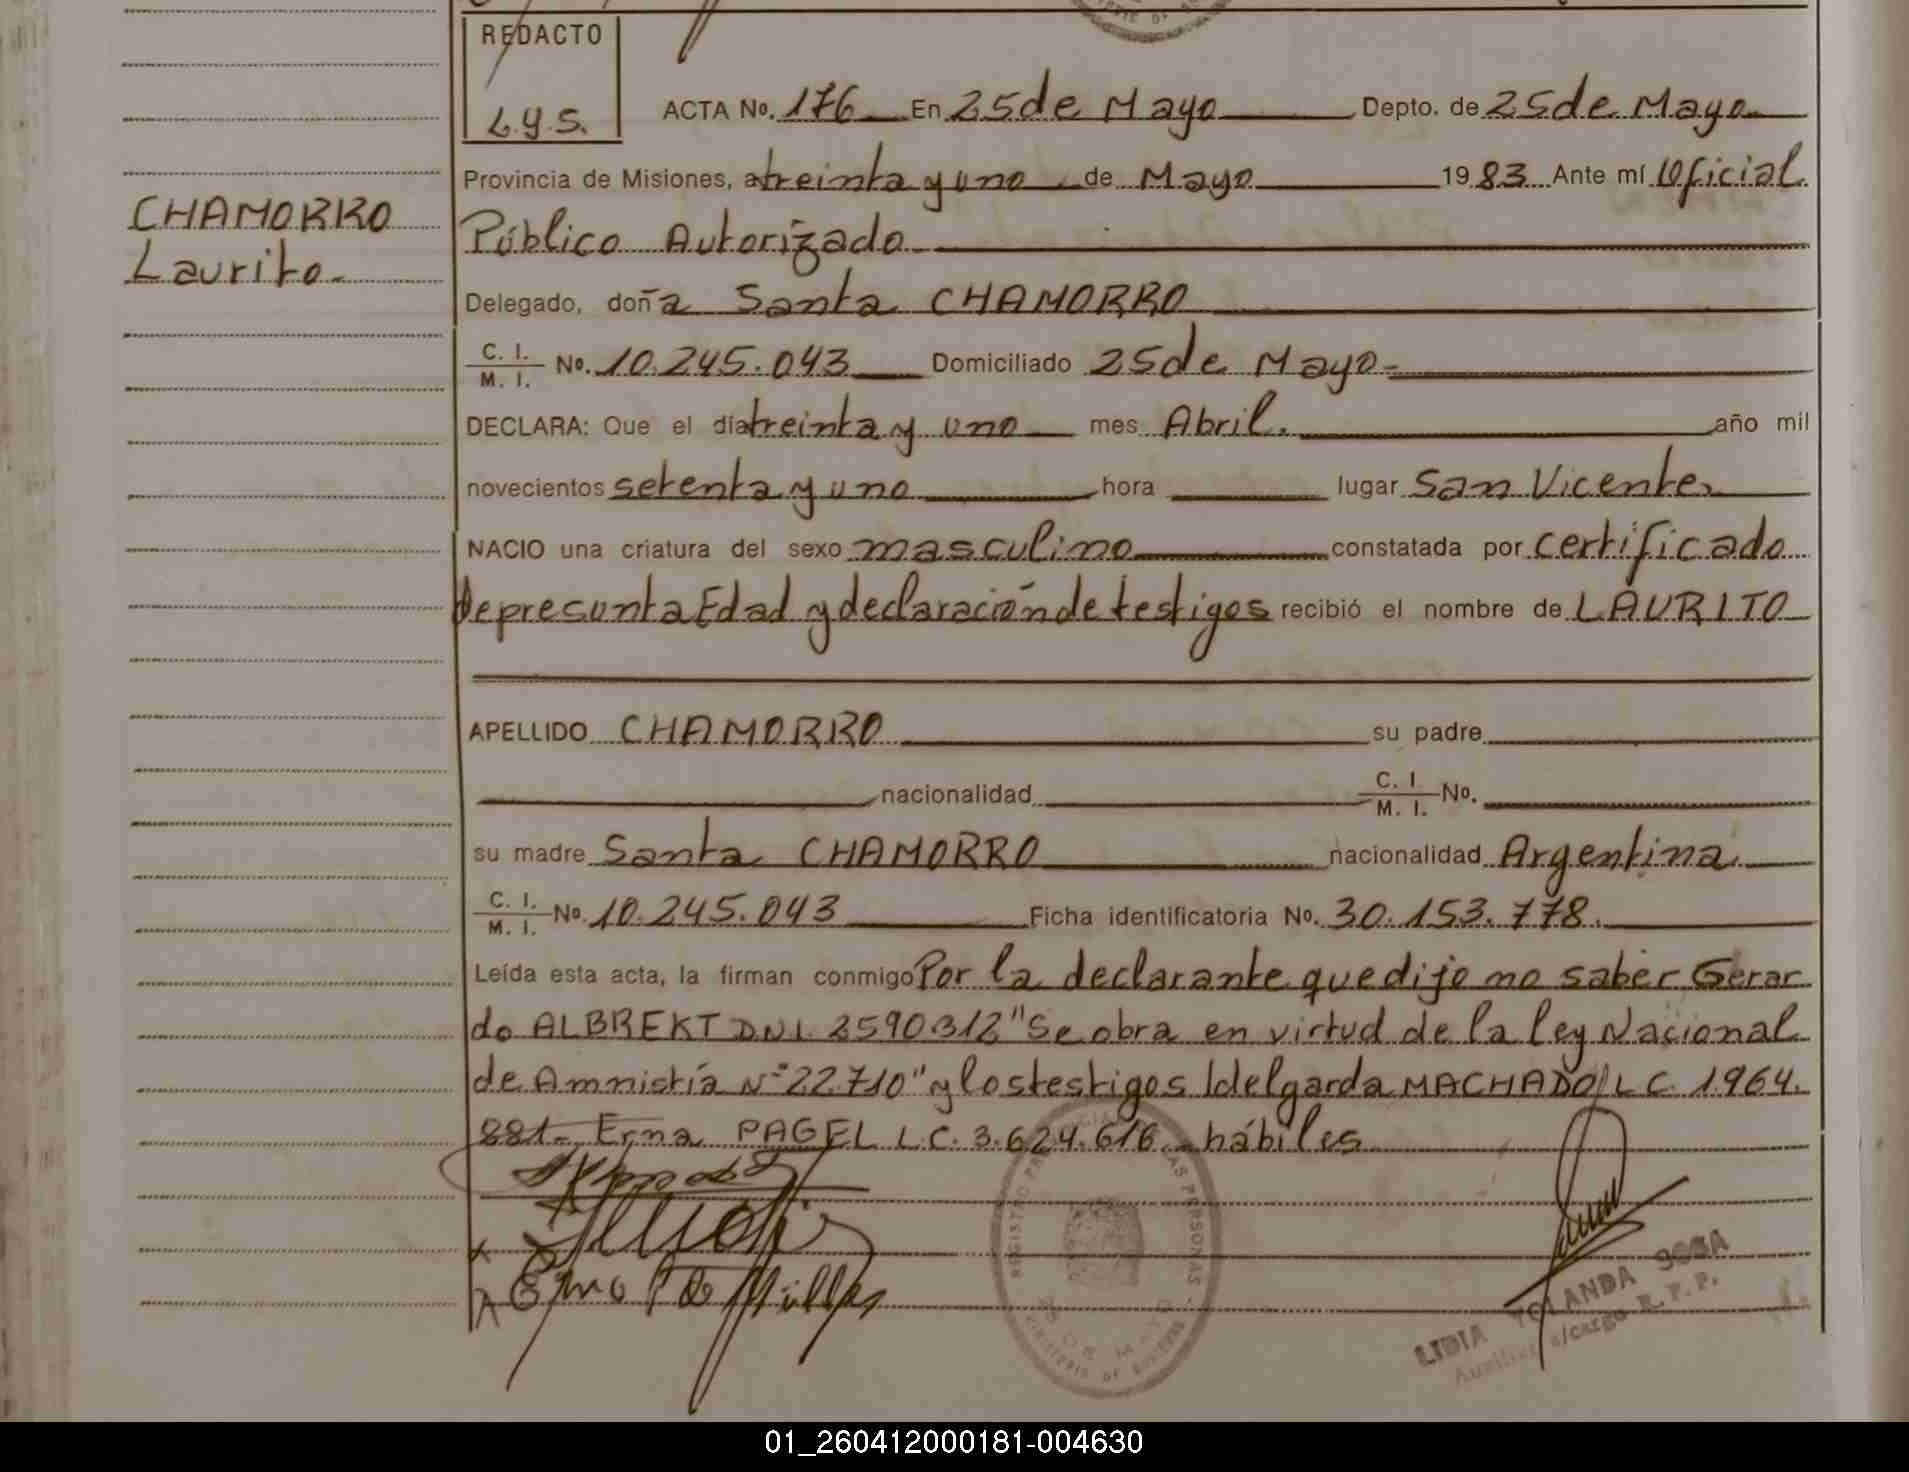 REDACTO
L.y.S.
ACTA No. 176 En 25 de Mayo Depto. de 25 de Mayo
Provincia de Misiones, a treinta y uno de Mayo 1983 Ante mí Oficial
CHAMORRO
Laurito-
Público Autorizado
Delegado, doña Santa CHAMORRO
C. I. / M. I. No. 10.245.043 Domiciliado 25 de Mayo-
DECLARA: Que el día treinta y uno mes Abril. año mil
novecientos setenta y uno hora lugar San Vicente
NACIO una criatura del sexo masculino constatada por certificado
de presunta Edad y declaración de testigos recibió el nombre de LAURITO
APELLIDO CHAMORRO su padre
nacionalidad C. I. / M. I. No.
su madre Santa CHAMORRO nacionalidad Argentina
C. I. / M. I. No. 10.245.043 Ficha identificatoria No. 30.153.778.
Leída esta acta, la firman conmigo Por la declarante que dijo no saber Gerar
do ALBREKT DNI. 2590312 "Se obra en virtud de la ley Nacional
de Amnistía N° 22.710" y los testigos Idelgarda MACHADO L C. 1.964.
881- Erna PAGEL L.C. 3.624.616 hábiles
REGISTRO PROVINCIAL LAS PERSONAS
25 DE MAYO
MINISTERIO DE
LIDIA YOLANDA SOSA
Auxiliar a/cargo R. P. P.
01_260412000181-004630